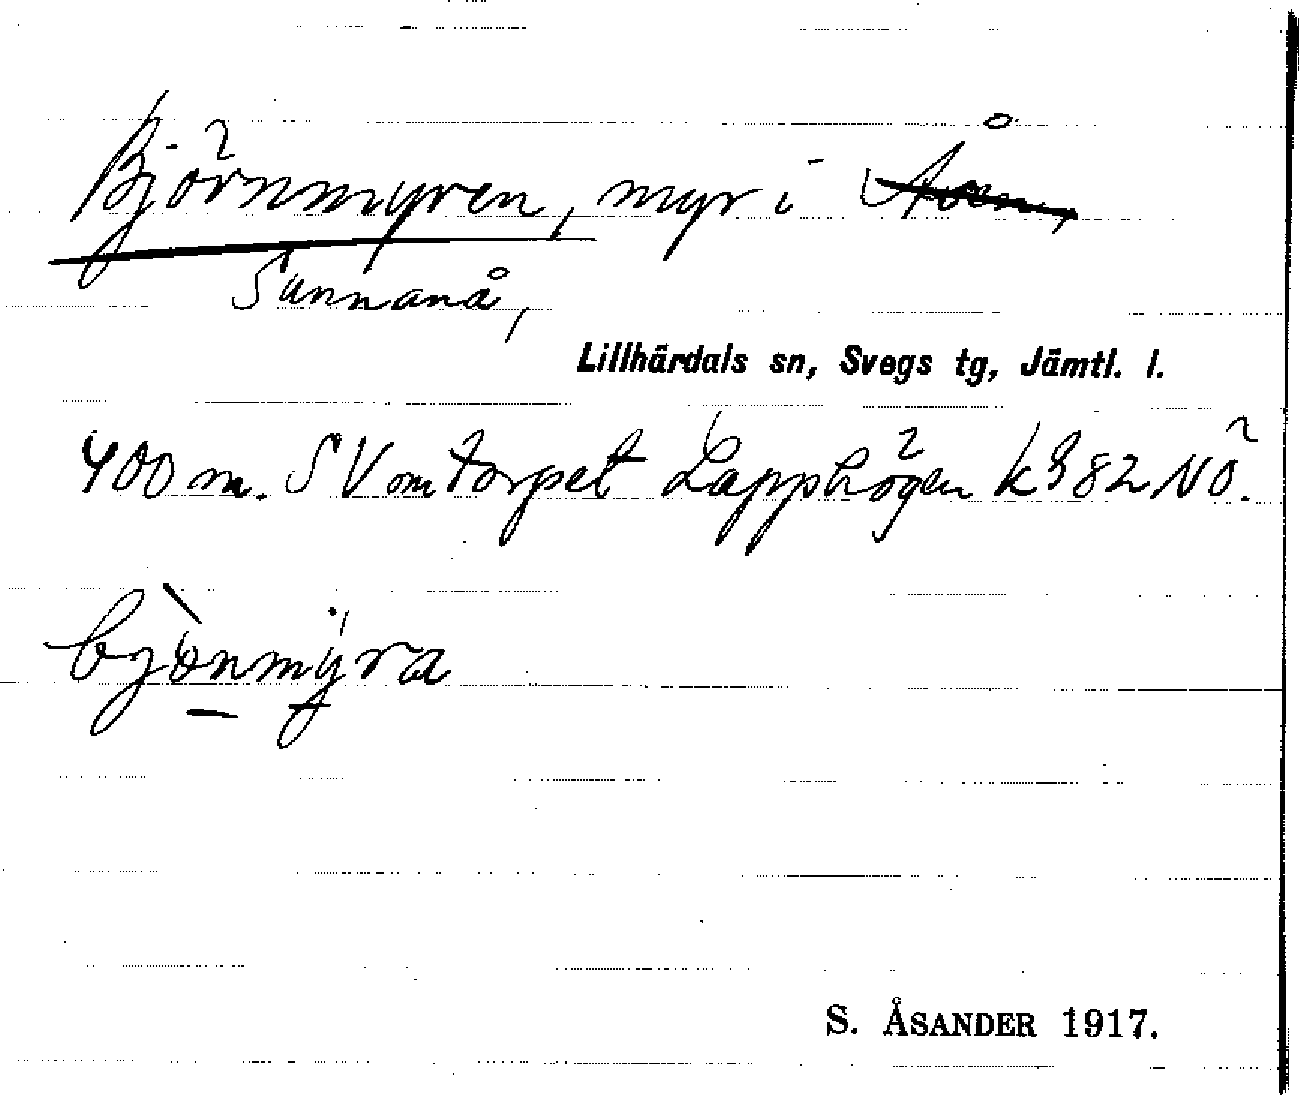 Björnmyren, myr i Åen,
Sunnanå,
Lillhärdals sn, Svegs tg, Jämtl. l.
400 m. SV om torpet Lapphögen k 982 NÖ.
bjònmýra
S. ÅSANDER 1917.